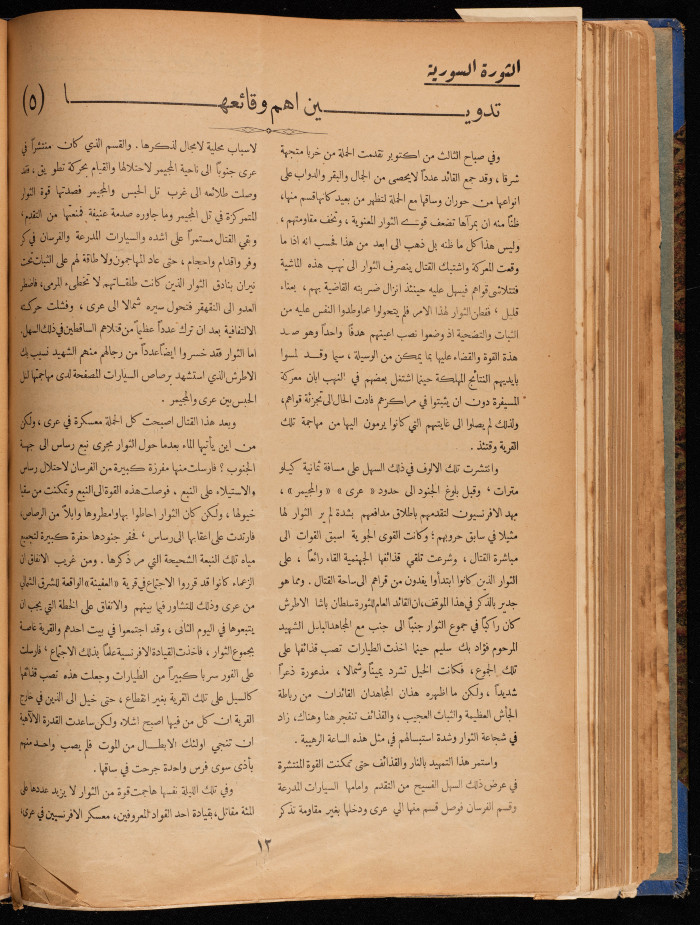 الثورة السورية
تدويـــن اهم وقائعهـــا (٥)
وفي صباح الثالث من اكتوبر تقدمت الحملة من خربا متجهة
شرقا ، وقد جمع القائد عدداً لايحصى من الجمال والبقر والدواب على
انواعها من حوران وساقها مع الحملة لتظهر من بعيد كانهاقسم منها،
ظناً منه ان بمرآها تضعف قوى الثوار المعنوية ، وتخف مقاومتهم ،
وليس هذا كل ما ظنه بل ذهب الى ابعد من هذا فحسب انه اذا ما
وقعت المعركة واشتبك القتال ينصرف الثوار الى نهب هذه الماشية
فتتلاشى قواهم فيسهل عليه حينئذ انزال ضربته القاضية بهم ، بعناء
قليل ، ففطن الثوار لهذا الامر فلم يتحولوا عماوطدوا النفس عليه من
الثبات والتضحية اذ وضعوا نصب اعينهم هدفاً واحداً وهو صد
هذه القوة والقضاء عليها بما يمكن من الوسيلة ، سيما وقد لمسوا
بايديهم النتائج المهلكة حينما اشتغل بعضهم في النهب ابان معركة
المسيفرة دون ان يثبتوا في مراكزهم فادت الحال الى تجزئة قواهم،
ولذلك لم يصلوا الى غايتهم التي كانوا يرمون اليها من مهاجمة تلك
القرية وقتئذ .
وانتشرت تلك الالوف في ذلك السهل على مسافة ثمانية كيلو
مترات ، وقبل بلوغ الجنود الى حدود « عرى » والمجيمر » ،
مهد الافرنسيون لتقدمهم باطلاق مدافعهم بشدة لم ير الثوار لها
مثيلا في سابق حروبهم ؛ وكانت القوى الجوية اسبق القوات الى
مباشرة القتال ، وشرعت تلقي قذائفها الجهنمية القاء رائعاً ، على
الثوار الذين كانوا ابتدأوا يفدون من قراهم الى ساحة القتال . ومما هو
جدير بالذكر في هذا الموقف،ان القائد العام للثورة سلطان باشا الاطرش
كان راكباً في جموع الثوار جنباً الى جنب مع المجاهد الباسل الشهيد
المرحوم فؤاد بك سليم حينما اخذت الطيارات تصب قذائفها على
تلك الجموع، فكانت الخيل تشرد يميناً وشمالا ، مذعورة ذعراً
شديداً ، ولكن ما اظهره هذان المجاهدان القائدان من رباطة
الجأش العظيمة والثبات العجيب ، والقذائف تنفجر هنا وهناك، زاد
في شجاعة الثوار وشدة استبسالهم في مثل هذه الساعة الرهيبة .
واستمر هذا التمهيد بالنار والقذائف حتى تمكنت القوة المنتشرة
في عرض ذلك السهل الفسيح من التقدم وامامها السيارات المدرعة
وقسم الفرسان فوصل قسم منها الى عرى ودخلها بغير مقاومة تذكر
لاسباب محلية لامجال لذكرها . والقسم الذي كان منتشراً في
عرى جنوباً الى ناحية المجيمر لاحتلالها والقيام بحركة تطويق، فقد
وصلت طلائعه الى غرب تل الحبس والمجيمر فصدتها قوة الثوار
المتمركزة في تل المجيمر وما جاوره صدمة عنيفة فمنعتها من التقدم،
وبقي القتال مستمراً على اشده والسيارات المدرعة والفرسان في كر
وفر واقدام واحجام ، حتى عاد المهاجمون ولا طاقة لهم على الثبات تحت
نيران بنادق الثوار الذين كانت طلقاتهم لا تخطىء المرمى، فاضطر
العدو الى التقهقر فتحول سيره شمالا الى عرى ، وفشلت حركته
الالتفافية بعد ان ترك عدداً عظيماً من قتلاهم الساقطين في ذلك السهل.
اما الثوار فقد خسروا ايضاً عدداً من رجالهم منهم الشهيد نسيب بك
الاطرش الذي استشهد برصاص السيارات المصفحة لدى مهاجمتها لتل
الحبس بين عرى والمجيمر .
وبعد هذا القتال اصبحت كل الحملة معسكرة في عرى ، ولكن
من اين يأتيها الماء بعدما حول الثوار مجرى نبع رساس الى جهة
الجنوب ؟ فارسلت منها مفرزة كبيرة من الفرسان لاحتلال رساس
والاستيلاء على النبع ، فوصلت هذه القوة الى النبع وتمكنت من سقيا
خيولها ، ولكن كان الثوار احاطوا بها وامطروها وابلاً من الرصاص،
فارتدت على اعقابها الى رساس ، فحفر جنودها حفرة كبيرة لتجميع
مياه تلك النبعة الشحيحة التي مر ذكرها . ومن غريب الاتفاق ان
الزعماء كانوا قد قرروا الاجتماع في قرية « العفينة» الواقعة للشرق الشمالي
من عرى وذلك للتشاور فيما بينهم والاتفاق على الخطة التي يجب ان
يتبعوها في اليوم الثاني ، وقد اجتمعوا في بيت احدهم والقرية غاصة
بجموع الثوار ، فاخذت القيادة الافرنسية علماً بذلك الاجتماع ، فارسلت
على الفور سرباً كبيراً من الطيارات وجعلت هذه تصب قذائفها
كالسيل على تلك القرية بغير انقطاع ، حتى خيل الى الذين في خارج
القرية ان كل من فيها اصبح اشلاء ولكن ساعدت القدرة الآلهية
ان تنجي اولئك الابطال من الموت فلم يصب واحد منهم
بأذى سوى فرس واحدة جرحت في ساقها .
وفي تلك الليلة نفسها هاجمت قوة من الثوار لا يزيد عددها على
المئة مقاتل، بقيادة احد القواد المعروفين، معسكر الافرنسيين في عرى،
١٢